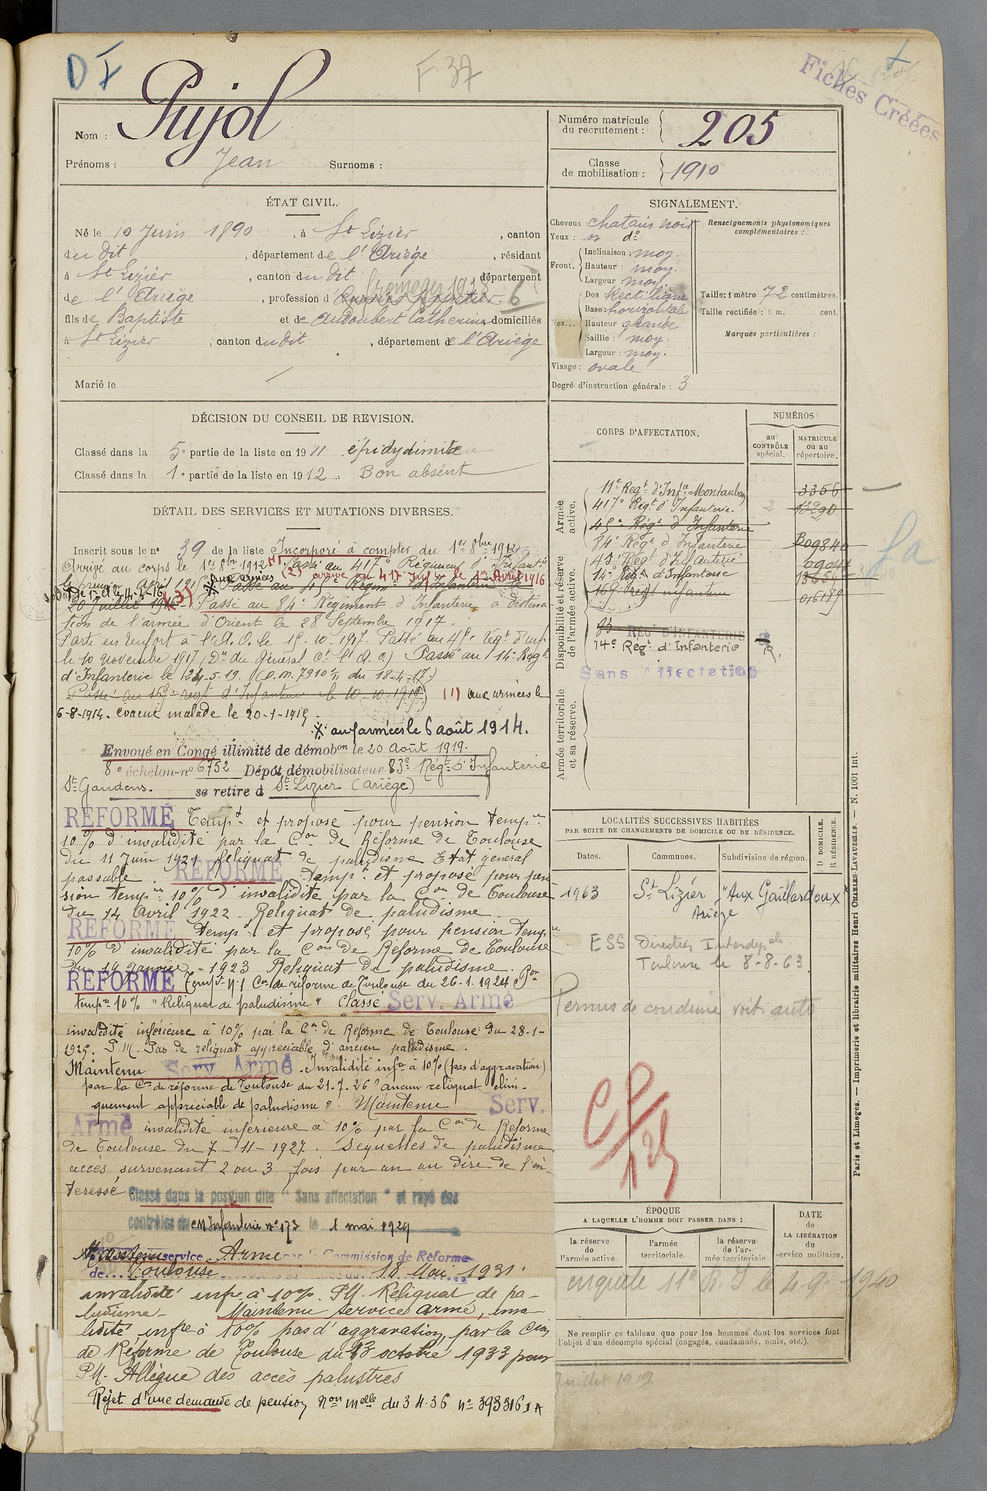 D I
F 37
Fiches Créées
Nom : Pujol
Prénoms : Jean Surnoms :
Numéro matricule du recrutement : 205
Classe de mobilisation : 1910
ÉTAT CIVIL.
Né le 10 Juin 1890, à St Lizier, canton
du dit, département de l'Ariège, résidant
à St Lizier, canton du dit département
de l'Ariège, profession d
fils de Baptiste et de Audoubert Catherine domiciliés
à St Lizier, canton du dit, département de l'Ariège
Marié le
SIGNALEMENT.
Cheveux : chatain noir
Yeux : n d°
Front. Inclinaison : moy.
Hauteur : moy.
Largeur : moy.
Dos Rectiligne
Base : horizontale
Hauteur grande
Saillie : moy.
Largeur : moy.
Visage : ovale
Degré d'instruction générale : 3
Renseignements physionomiques complémentaires :
Taille : 1 mètre 72 centimètres.
Taille rectifiée : 1 m. cent.
Marques particulières :
DÉCISION DU CONSEIL DE REVISION.
Classé dans la 5e partie de la liste en 1911 épidydimite
Classé dans la 1e partie de la liste en 1912. Bon absent
DÉTAIL DES SERVICES ET MUTATIONS DIVERSES.
Inscrit sous le n° 39 de la liste Incorporé à compter du 1er 8bre 1912
Arrivé au corps le 1er 8bre 1912 Passé au 417e Régiment d'Infantie
Passé au 84e Régiment d'Infanterie à destina
tion de l'armée d'Orient le 28 Septembre 1917.
Parti en renfort à l'A.O. le 15-10-1917. Passé au 45e Régt d'Inf
le 10 novembre 1917 (Don du Général Ct l'A.O) Passé au 14e Regt
d'Infanterie le 24-5-19.
Passé au 169e regt d'Infanterie le 10-10-1919) (1) aux armées le
6-8-1914. évacué malade le 20-1-1915.
aux armées le 6 août 1914.
Envoyé en Congé illimité de démobon le 20 Août 1919.
8e échelon-n° 6752 Dépôt démobilisateur 83e Régt d'Infanterie
St Gaudens. se retire à St Lizier (Ariège)
RÉFORMÉ Tempre et proposé pour pension tempre
10% d'invalidité par la Con de Réforme de Toulouse
du 11 Juin 1921 Reliquat de paludisme Etat général
passable. RÉFORMÉ temp. et proposé pour pen
sion tempre 10% d'invalidité par la Con de Toulouse
du 14 Avril 1922. Reliquat de paludisme.
RÉFORMÉ temp. et proposé pour pension temp.
10% d'invalidité par la Con de Réforme de Toulouse
du 14 Janvier 1923 Reliquat de paludisme.
RÉFORMÉ Temp. n°1 Con de réforme de Toulouse du 26.1.1924 Pon
tempre 10% "Reliquat de paludisme" Classé Serv. Armé
invalidité inférieure à 10% par la Con de Réforme de Toulouse du 28-1-
1925. P.M. Pas de reliquat appréciable d'ancien paludisme.
Maintenu Serv. Armé. Invalidité infre à 10% (pas d'aggravation)
par la Con de réforme de Toulouse du 21-7-26 "aucun reliquat clini-
quement appréciable de paludisme". Maintenu Serv.
Armé invalidité inférieure à 10% par la Con de Réforme
de Toulouse du 7-11-1927. Sequelles de paludisme
accès survenant 2 ou 3 fois par an au dire de l'in-
téressé Classé dans la position dite "Sans affectation" et rayé des
contrôles du CM Infanterie n°173 le 1 mai 1929
Maintenu service Armé par la Commission de Réforme
de Toulouse 18 Mai 1931.
invalidité infre à 10%. PM. Reliquat de pa-
ludisme. Maintenu service armé, inva
lidité infre à 10% pas d'aggravation, par la Con
de Réforme de Toulouse du 23 octobre 1933 pour
PM. Allègue des accès palustres
Rejet d'une demande de pension Non mlle du 3.4.36 n° 393316 1 A
CORPS D'AFFECTATION.
NUMÉROS
au CONTRÔLE spécial.
MATRICULE ou au répertoire.
Armée active.
Disponibilité et réserve de l'armée active.
Armée territoriale et sa réserve.
11e Regt d'Infie Montauban 3356
417e Regt d'Infanterie. 2
45e Régt d'Infanterie
84e Régt d'Infanterie
45e Régt d'Infanterie
14e Régt d'Infanterie
169e Regt infanterie
83 RÉGt D'INFANTERIE
14e Régt d'Infanterie
Sans affectation
LOCALITÉS SUCCESSIVES HABITÉES
PAR SUITE DE CHANGEMENTS DE DOMICILE OU DE RÉSIDENCE.
Dates. Communes. Subdivision de région. D. DOMICILE. R. RÉSIDENCE.
1963 St Lizier "Aux Gaillardoux"
Ariège
ESS Direction Interdeptale
Toulouse le 8-8-63
Permis de conduire voit. auto
ÉPOQUE
A LAQUELLE L'HOMME DOIT PASSER DANS :
la réserve de l'armée active.
l'armée territoriale.
la réserve de l'armée territoriale
DATE de LA LIBÉRATION du service militaire.
Ne remplir ce tableau que pour les hommes dont les services font
l'objet d'un décompte spécial (engagés, condamnés, omis, etc.).
Juillet 1919
Paris et Limoges. — Imprimerie et librairie militaires Henri CHARLES-LAVAUZELLE. — N. 1001 int.